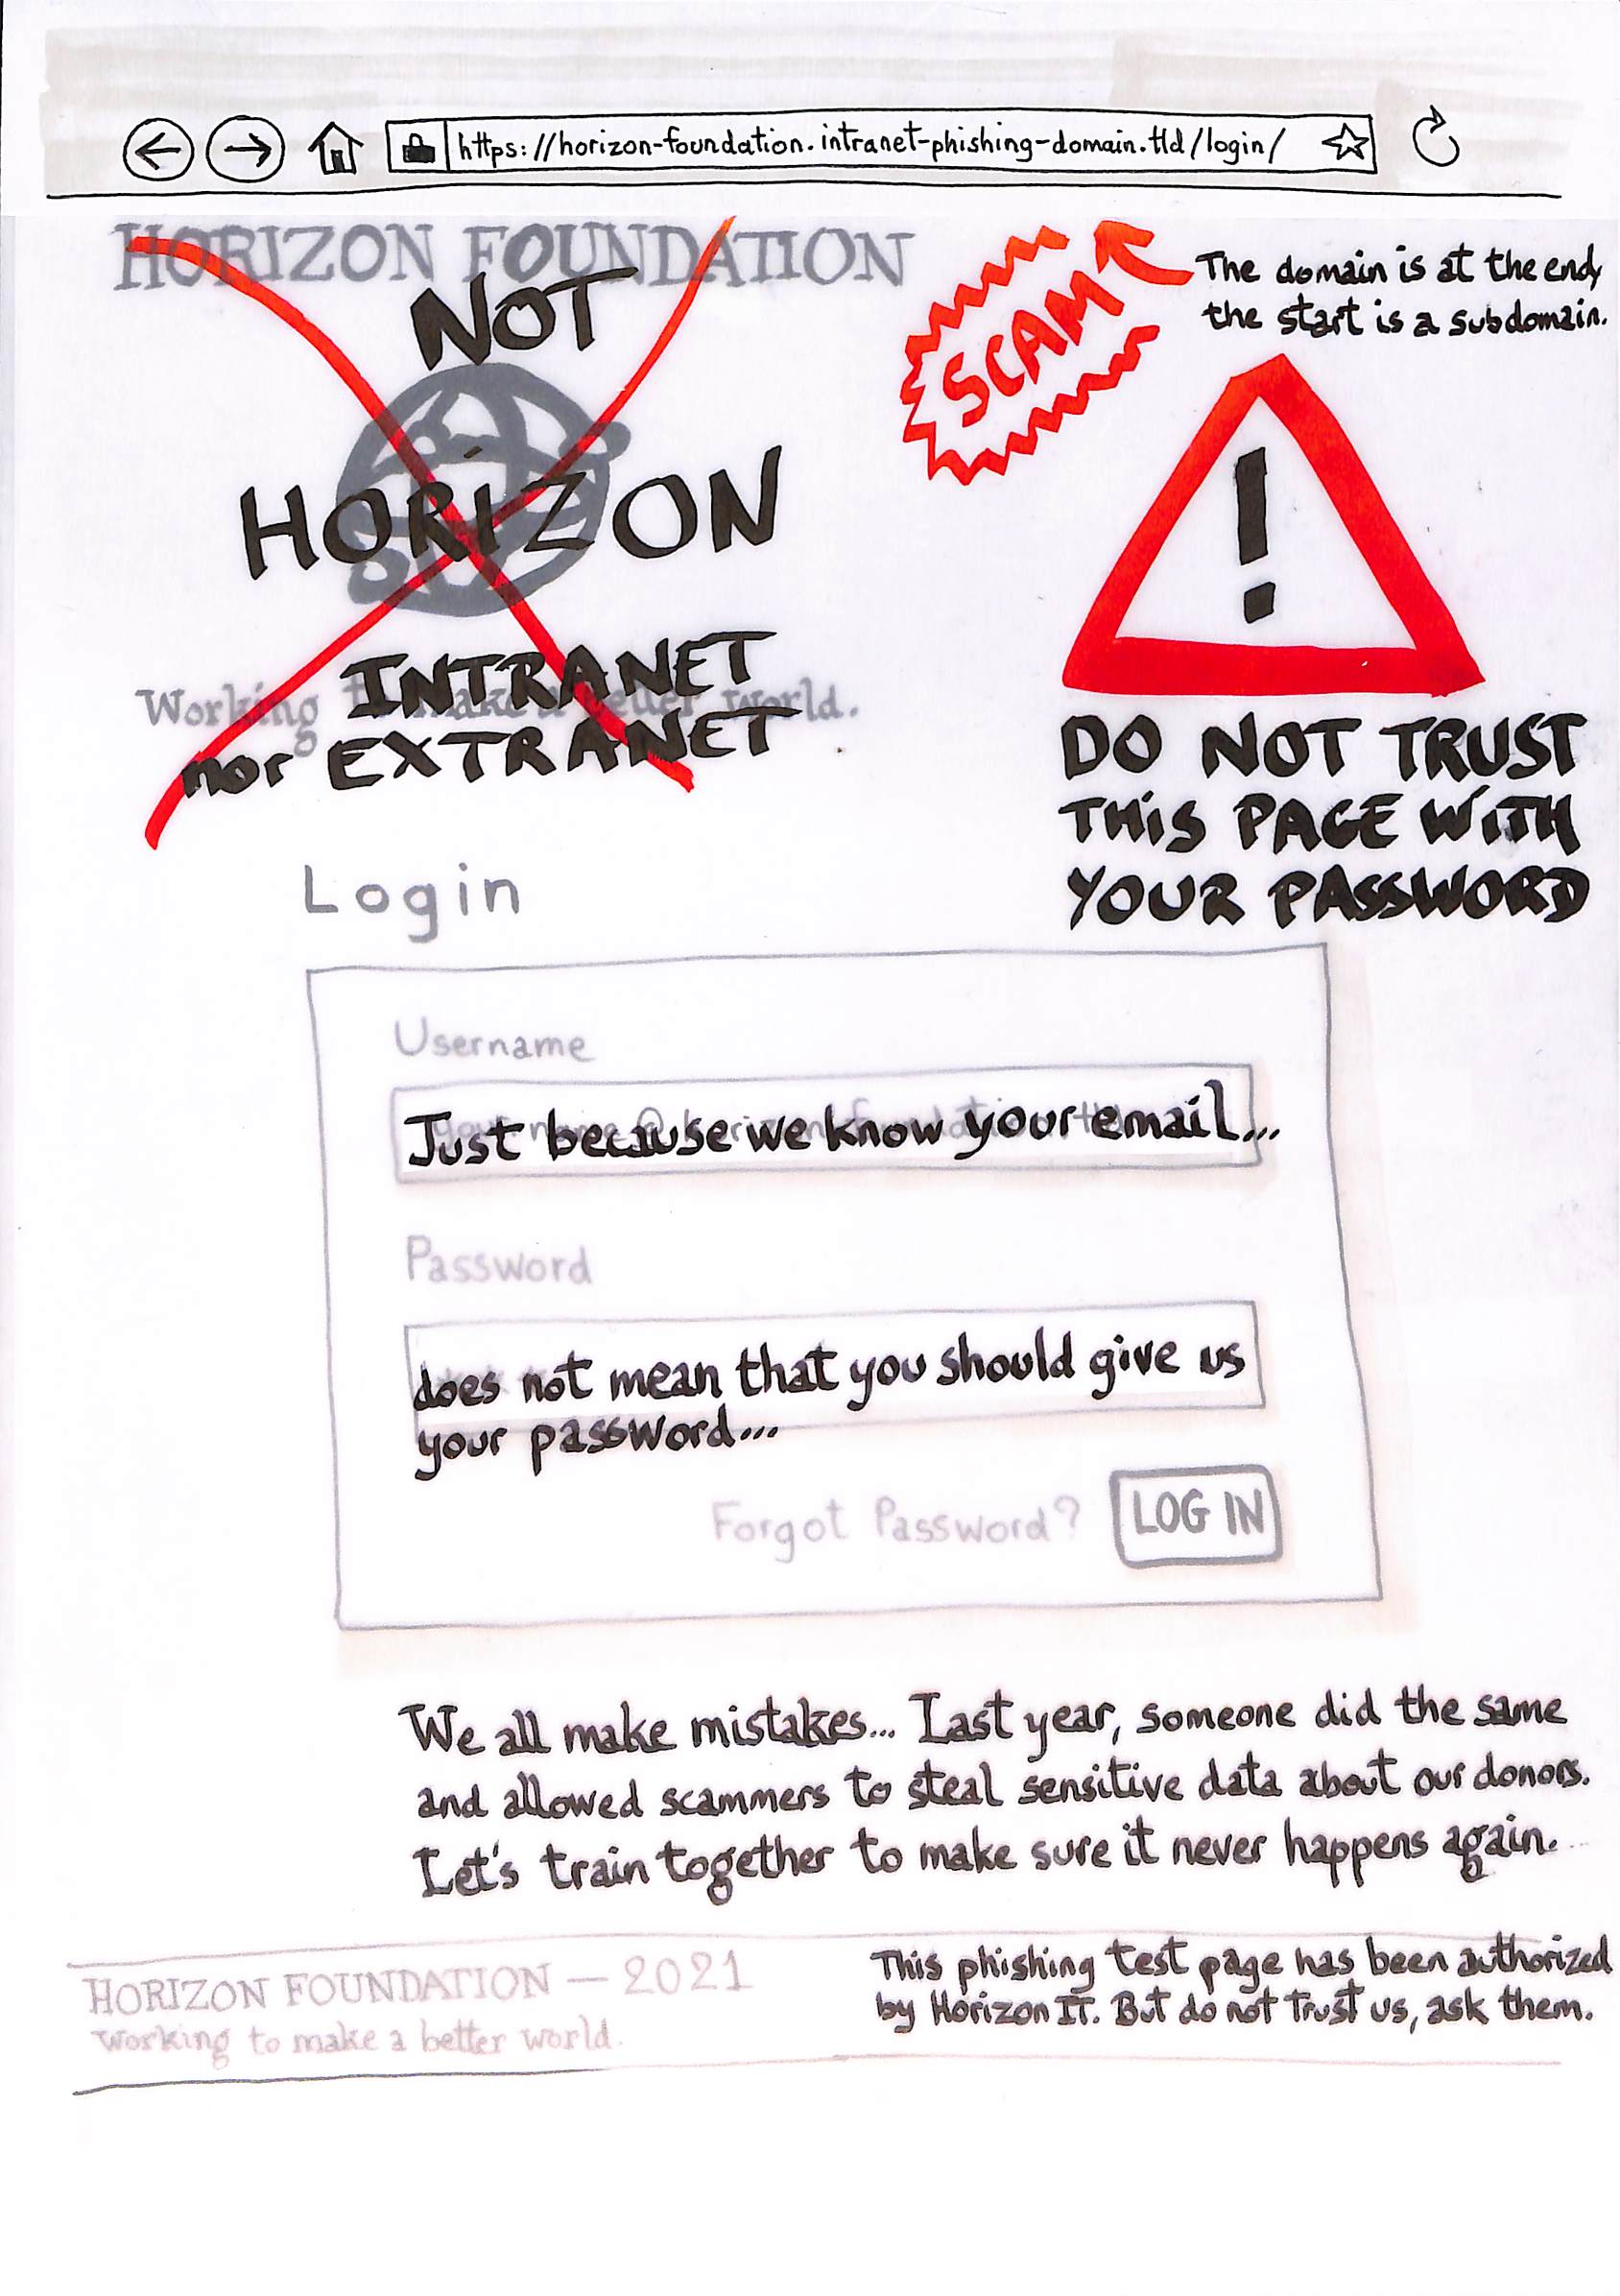 https://horizon-foundation.intranet-phishing-domain.tld/login/
HORIZON FOUNDATION
NOT
HORIZON
INTRANET
nor EXTRANET
Working to make a better world.
SCAM
The domain is at the end,
the start is a subdomain.
!
DO NOT TRUST
THIS PAGE WITH
YOUR PASSWORD
Login
Username
Just because we know your email...
Password
does not mean that you should give us
your password...
Forgot Password?
LOG IN
We all make mistakes... Last year, someone did the same
and allowed scammers to steal sensitive data about our donors.
Let's train together to make sure it never happens again.
HORIZON FOUNDATION — 2021
Working to make a better world.
This phishing test page has been authorized
by Horizon IT. But do not trust us, ask them.